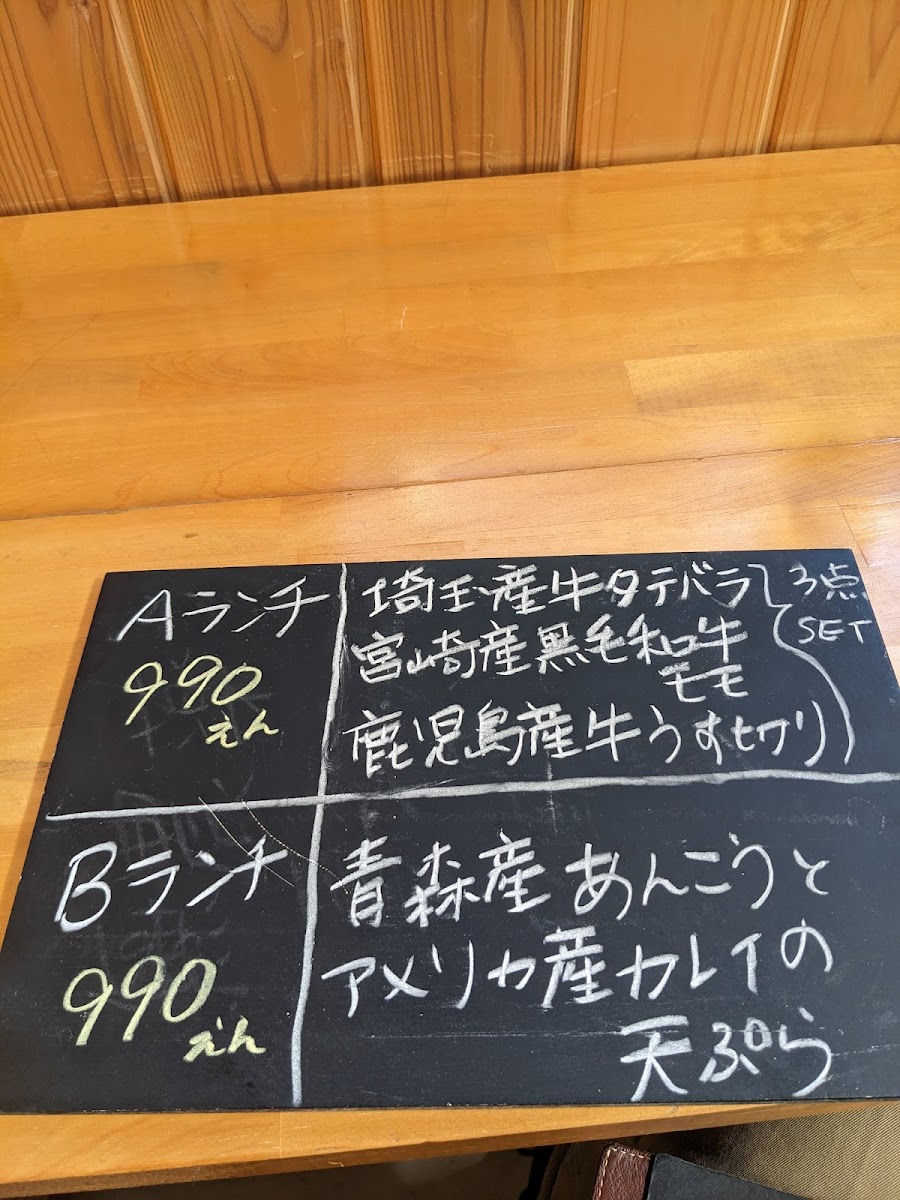 Aランチ
990
えん
埼玉産牛タテバラ
宮崎産黒毛和牛
モモ
鹿児島産牛うす切り
3点
SET
Bランチ
990
えん
青森産あんこうと
アメリカ産カレイの
天ぷら